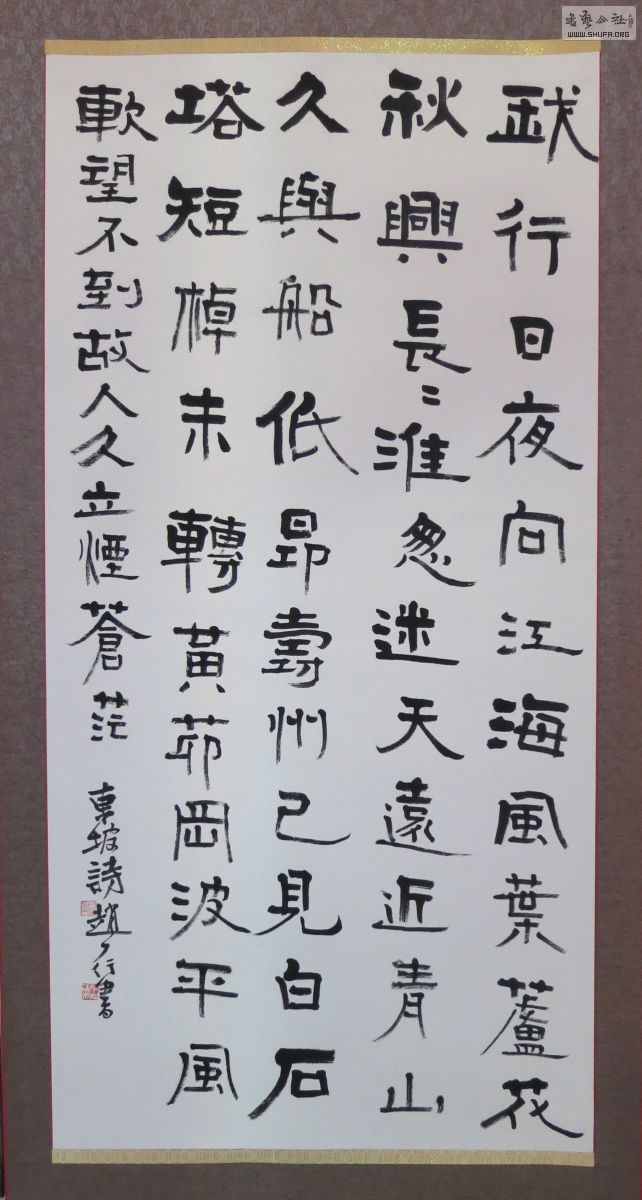 我行日夜向江海風葉蘆花
秋興長〻淮忽迷天遠近青山
久與船低昂壽州已見白石
塔短棹未轉黃茆岡波平風
軟望不到故人久立煙蒼茫 東坡詩 趙行書
書藝公社
WWW.SHUFA.ORG